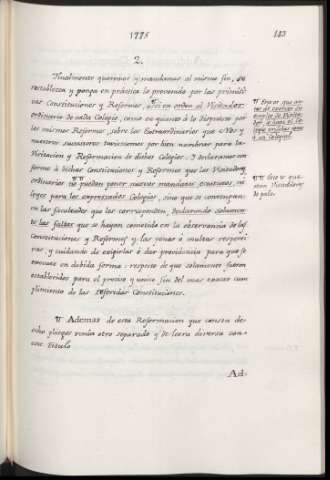 1776
183
2.
Igualmente queremos y mandamos al mismo fin, se
restablezca y ponga en práctica lo prevenido por las primiti-
vas Constituciones y Reformas, así en orden al Visitador
ordinario de cada Colegio, como en quanto à lo dispuesto por
las mismas Reformas, sobre los Extraordinarios que Nos y
nuestros succesores tuviessemos por bien nombrar para la
Visitacion y Reformacion de dichos Colegios. Y declaramos con-
forme à dichas Constituciones y Reformas que los Visitadores
ordinarios no pueden poner nuevos mandatos, estatutos, ni
leyes para los expresados Colegios, sino que se contengan
en las facultades que les corresponden, declarando solamen-
te las faltas que se hayan cometido en la observancia de las
Constituciones y Reformas y las penas ò multas respecti-
vas, y cuidando de exigirlas ò dar providencia para que se
execute en debida forma: respeto de que solamente fueron
establecidos para el preciso y unico fin del mas exacto cum-
plimiento de las referidas Constituciones.
¶ Ademas de esta Reformacion que consta de
ocho pliegos venia otro separado y de letra diversa con
este titulo
Ad-
¶ Esto es que an-
tes de
¶¶ Esto es que
sean Visitadores
de palo.